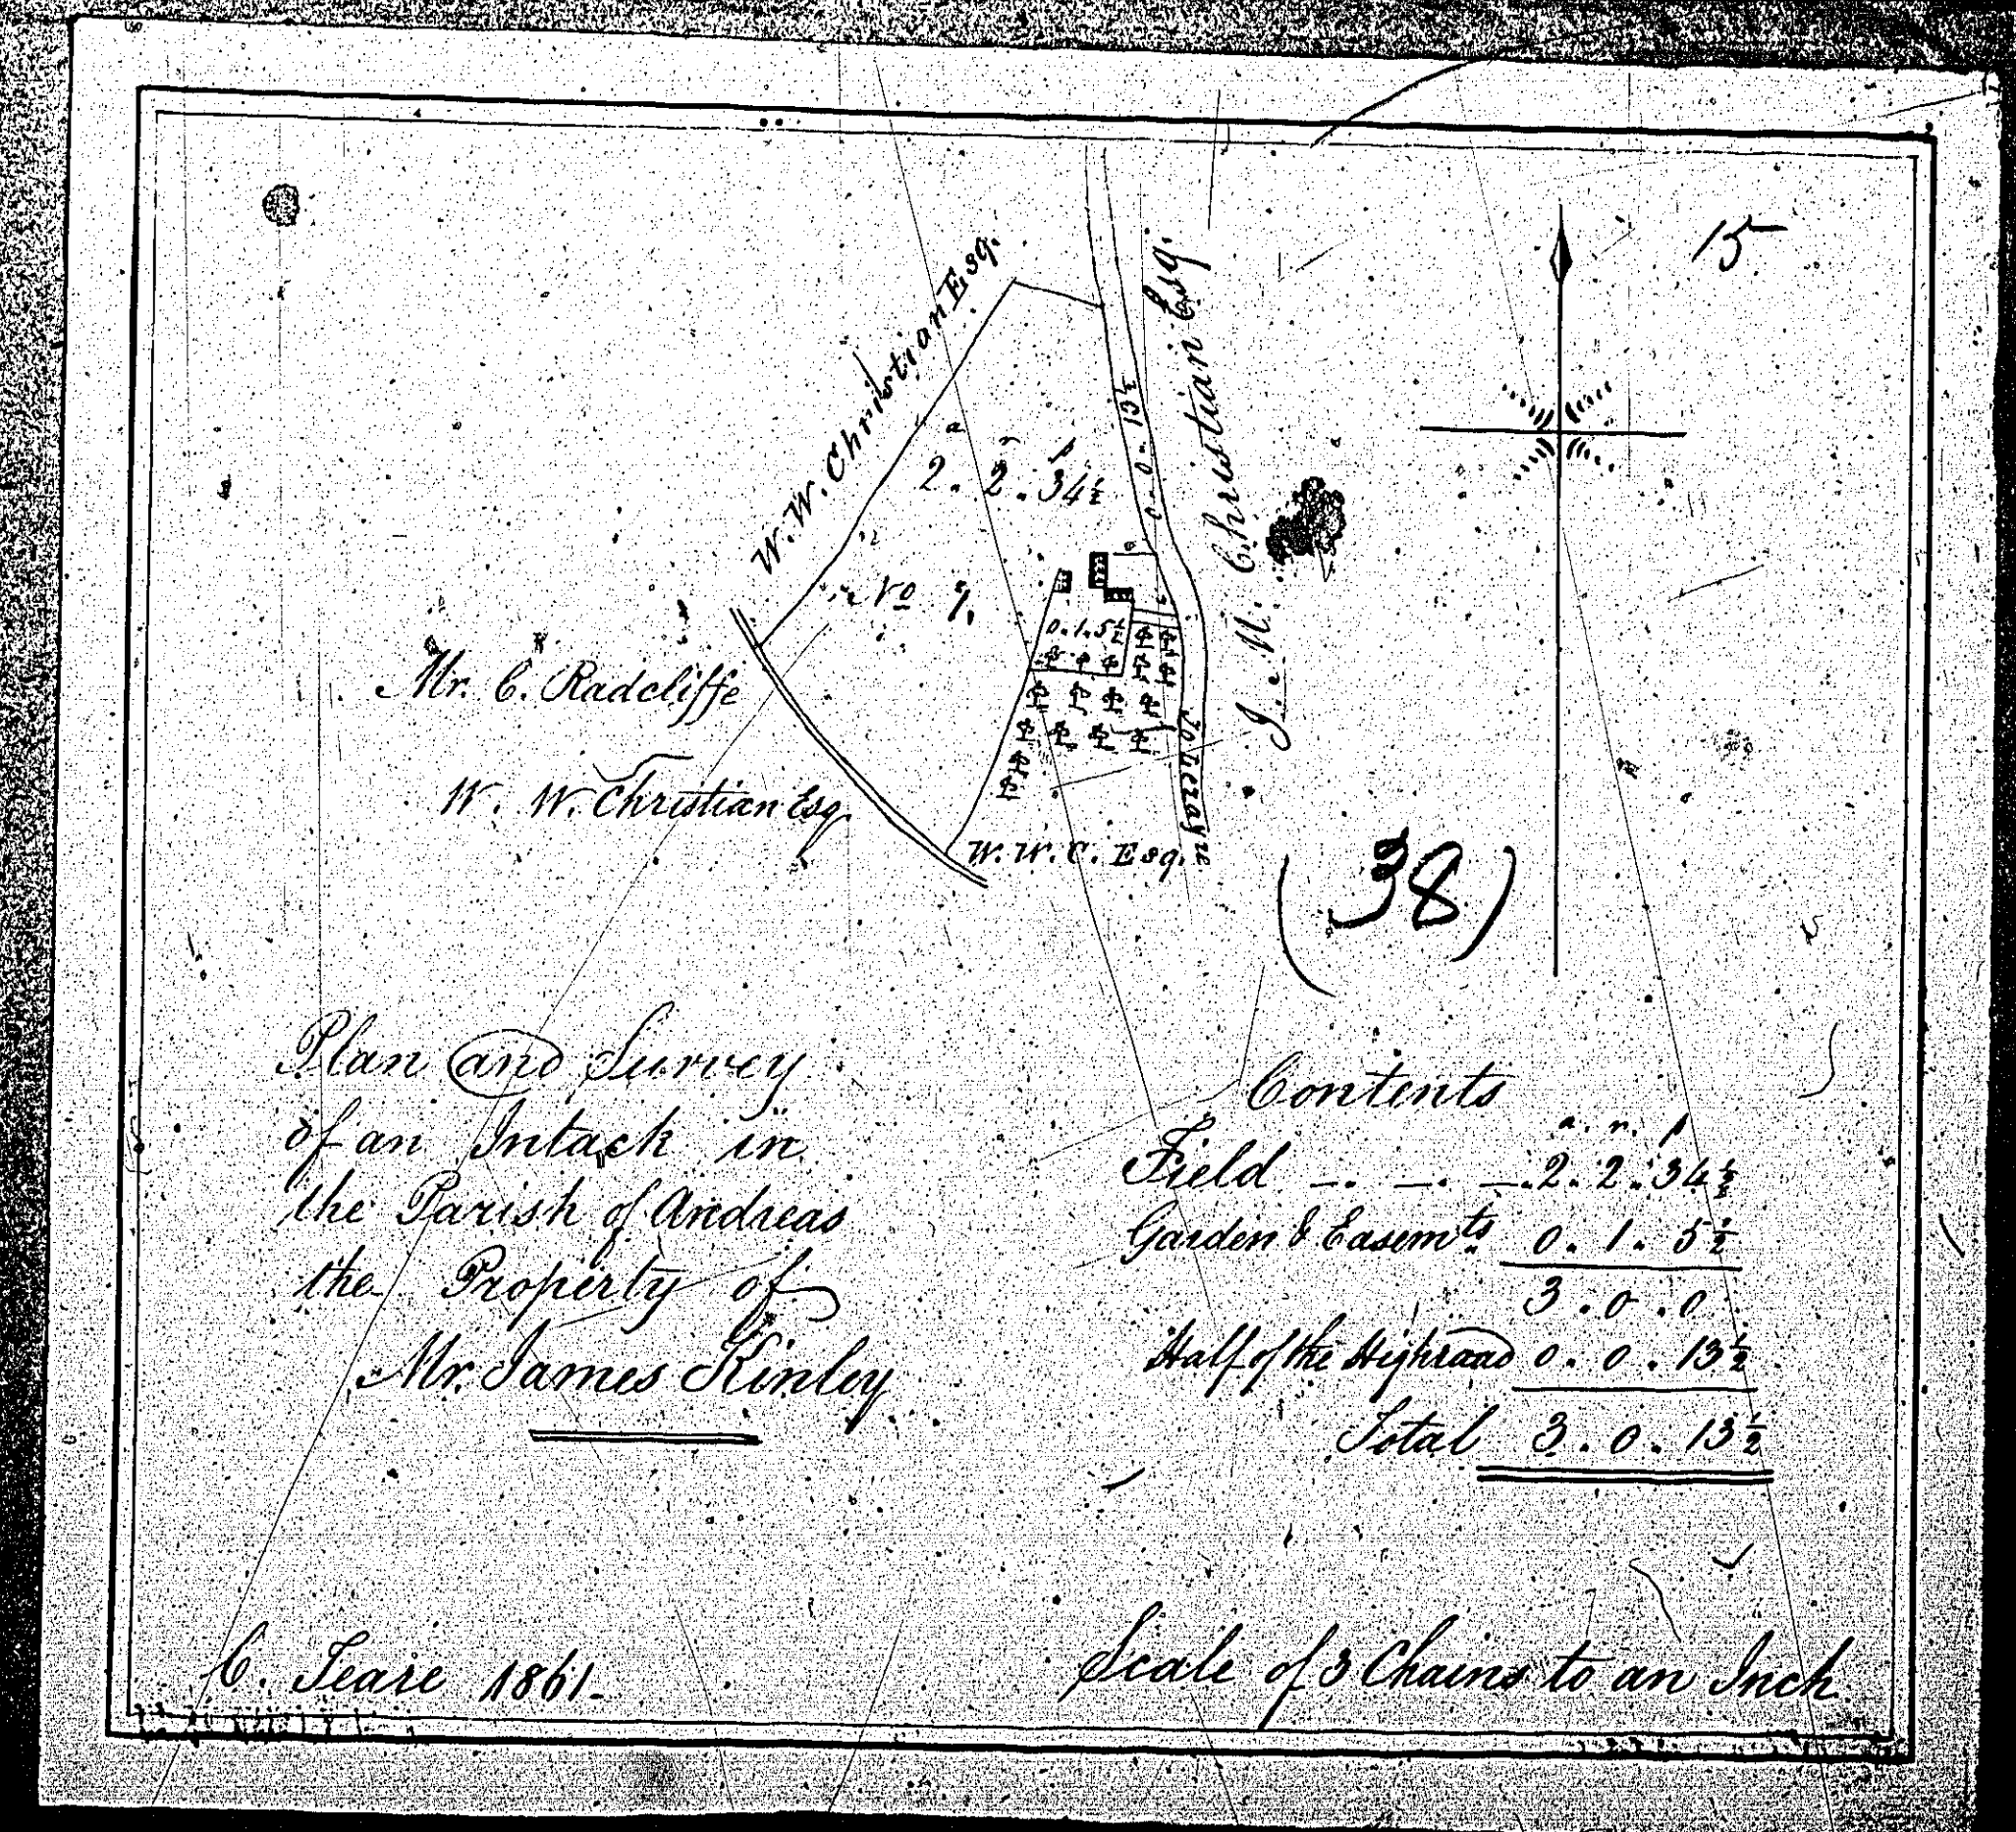 15
W. W. Christian Esq.
J. M. Christian Esq.
a r p
2. 2. 34½
0.0.13½
No 1.
0.1.5½
Mr. C. Radcliffe
W. W. Christian Esq.
W. W. C. Esq.
To Lezayre
(38)
Plan and Survey
of an Intack in
the Parish of Andreas
the Property of
Mr. James Kinley
Contents
a. r. p
Field -. -. -. 2. 2. 34½
Garden & Easemts. 0. 1. 5½
3. 0. 0
Half of the Highroad 0. 0. 13½
Total 3. 0. 13½
C. Teare 1861-
Scale of 3 Chains to an Inch